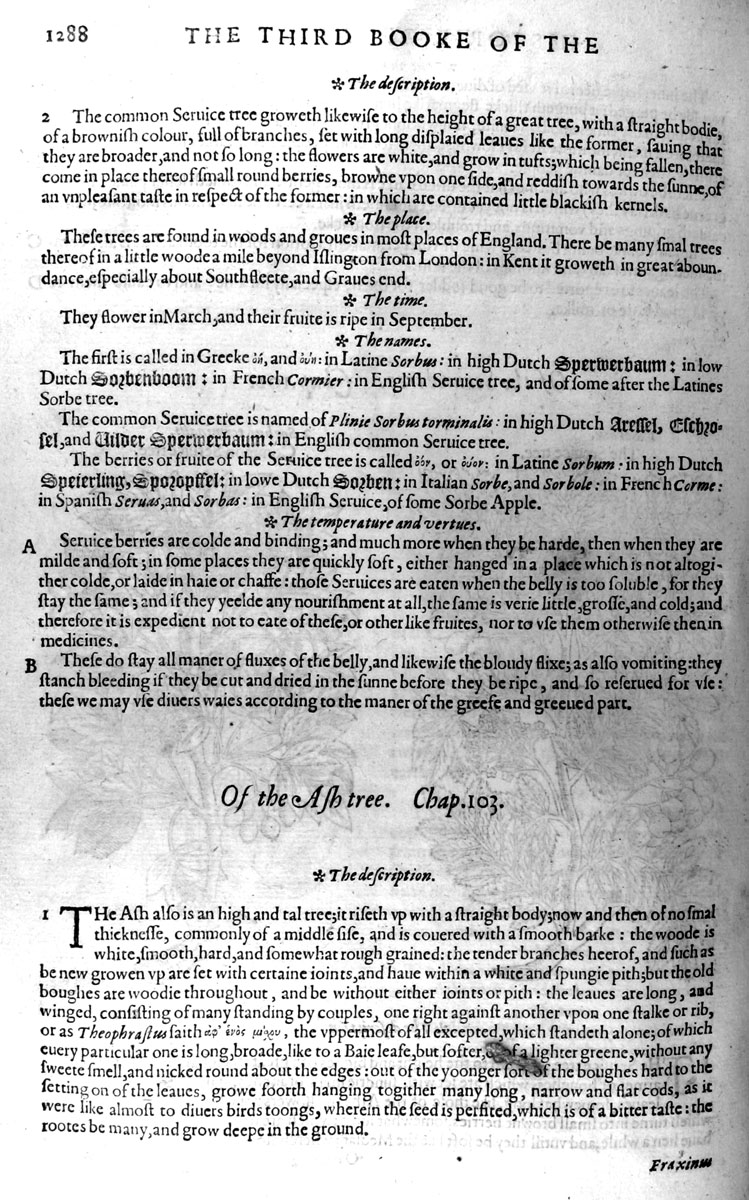 1288 THE THIRD BOOKE OF THE
✻ The deſcription.
2 The common Seruice tree groweth likewiſe to the height of a great tree, with a ſtraight bodie,
of a browniſh colour, full of branches, ſet with long diſplaied leaues like the former, ſauing that
they are broader, and not ſo long: the flowers are white, and grow in tufts; which being fallen, there
come in place thereof ſmall round berries, browne vpon one ſide, and reddiſh towards the ſunne, of
an vnpleaſant taſte in reſpect of the former: in which are contained little blackiſh kernels.
✻ The place.
Theſe trees are found in woods and groues in moſt places of England. There be many ſmal trees
thereof in a little woode a mile beyond Iſlington from London: in Kent it groweth in great aboun-
dance, eſpecially about Southfleete, and Graues end.
✻ The time.
They flower in March, and their fruite is ripe in September.
✻ The names.
The firſt is called in Greeke and in Latine Sorbus: in high Dutch Sperwerbaum: in low
Dutch Sorbenboom: in French Cormier: in Engliſh Seruice tree, and of ſome after the Latines
Sorbe tree.
The common Seruice tree is named of Plinie Sorbus torminalis: in high Dutch Areſſel, Eſchro-
ſel, and Wilder Sperwerbaum: in Engliſh common Seruice tree.
The berries or fruite of the Seruice tree is called or in Latine Sorbum: in high Dutch
Speierling, Sporopffel: in lowe Dutch Sorben: in Italian Sorbe, and Sorbole: in French Corme:
in Spaniſh Seruas, and Sorbas: in Engliſh Seruice, of ſome Sorbe Apple.
✻ The temperature and vertues.
A Seruice berries are colde and binding; and much more when they be harde, then when they are
milde and ſoft; in ſome places they are quickly ſoft, either hanged in a place which is not altogi-
ther colde, or laide in haie or chaffe: thoſe Seruices are eaten when the belly is too ſoluble, for they
ſtay the ſame; and if they yeelde any nouriſhment at all, the ſame is verie little, groſſe, and cold; and
therefore it is expedient not to eate of theſe, or other like fruites, nor to vſe them otherwiſe then in
medicines.
B Theſe do ſtay all maner of fluxes of the belly, and likewiſe the bloudy flixe; as alſo vomiting: they
ſtanch bleeding if they be cut and dried in the ſunne before they be ripe, and ſo reſerued for vſe:
theſe we may vſe diuers waies according to the maner of the greefe and greeued part.
Of the Aſh tree. Chap. 103.
✻ The deſcription.
1 THe Aſh alſo is an high and tal tree; it riſeth vp with a ſtraight body; now and then of no ſmal
thickneſſe, commonly of a middle ſiſe, and is couered with a ſmooth barke: the woode is
white, ſmooth, hard, and ſomewhat rough grained: the tender branches heerof, and ſuch as
be new growen vp are ſet with certaine ioints, and haue within a white and ſpungie pith; but the old
boughes are woodie throughout, and be without either ioints or pith: the leaues are long, and
winged, conſiſting of many ſtanding by couples, one right againſt another vpon one ſtalke or rib,
or as Theophraſtus ſaith, the vppermoſt of all excepted, which ſtandeth alone; of which
euery particular one is long, broade, like to a Baie leafe, but ſofter, of a lighter greene, without any
ſweete ſmell, and nicked round about the edges: out of the yoonger ſort of the boughes hard to the
ſetting on of the leaues, growe foorth hanging togither many long, narrow and flat cods, as it
were like almoſt to diuers birds toongs, wherein the ſeed is perfited, which is of a bitter taſte: the
rootes be many, and grow deepe in the ground.
Fraxinus